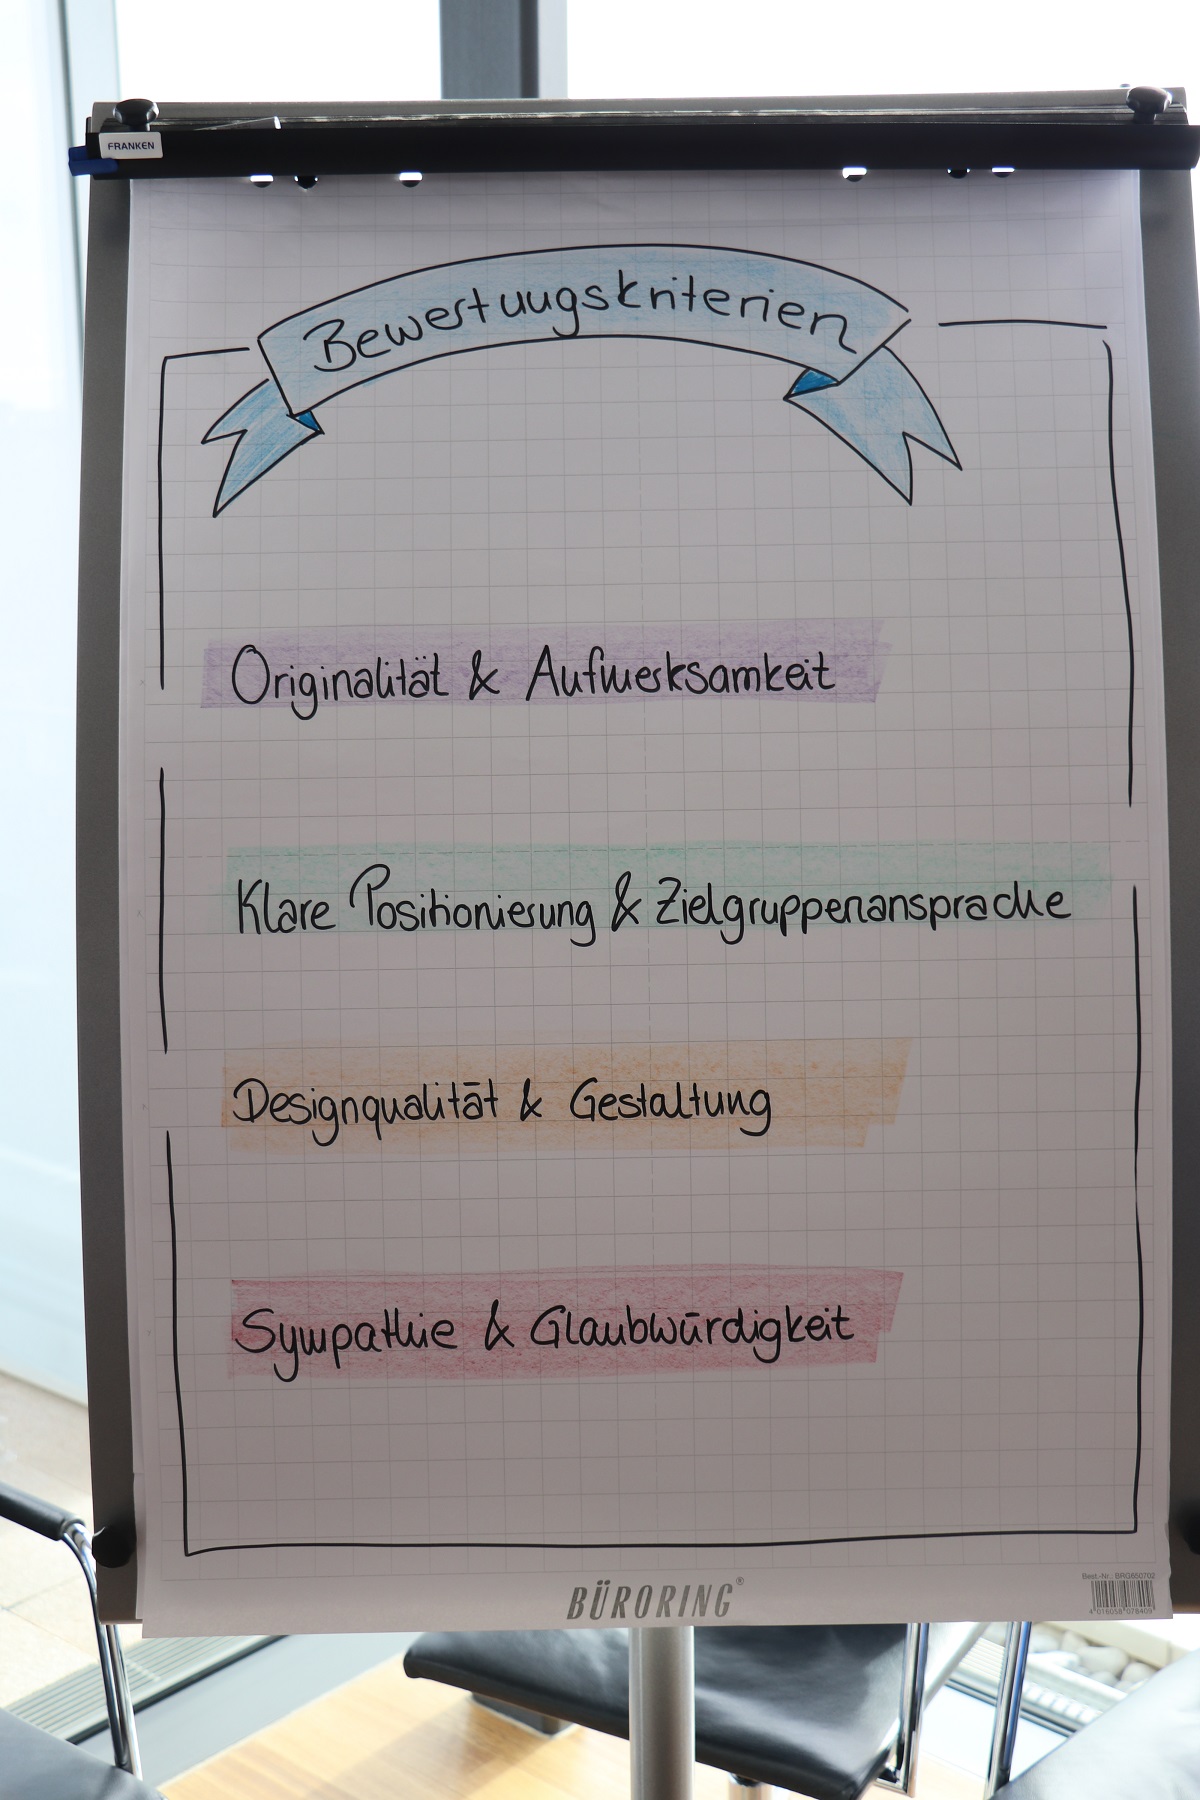 FRANKEN
Bewertungskriterien
Originalität & Aufmerksamkeit
Klare Positionierung & Zielgruppenansprache
Designqualität & Gestaltung
Sympathie & Glaubwürdigkeit
BÜRORING®
Best.-Nr.: BRG650702
4 016058 078409